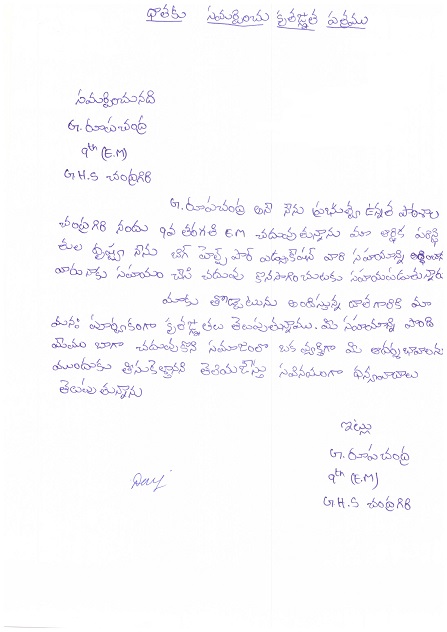 ధాతకు సమర్పించు కృతజ్ఞత పత్రము
సమర్పించునది
G. రూపచంద్ర
9th (E.M)
G.H.S చంద్రగిరి
G. రూపచంద్ర అనే నేను ప్రభుత్వ ఉన్నత పాఠశాల
చంద్రగిరి నందు 9వ తరగతి E.M చదువుతున్నాను మా ఆర్థిక పరిస్థి
తుల దృష్ట్యా నేను హెల్ప్ ఫార్ ఎడ్యుకేషన్ వారి సహయాన్ని
వారు నాకు సహయం చేసి చదువు కొనసాగించుటకు సహయపడుతున్నారు
మాకు తోడ్పాటును అందిస్తున్న దాతగారికి మా
మనః పూర్వకంగా కృతజ్ఞతలు తెలుపుతున్నాము. మీ సహయాన్ని పొంది
మేము బాగా చదువుకొని సమాజంలో ఒక వ్యక్తిగా మీ ఆదర్శభావాలను
ముందుకు తీసుకెళ్తానని తెలియజేస్తు సవినయంగా ధన్యవాదాలు
తెలుపుతున్నాను
ఇట్లు
G. రూపచంద్ర
9th (E.M)
G.H.S చంద్రగిరి